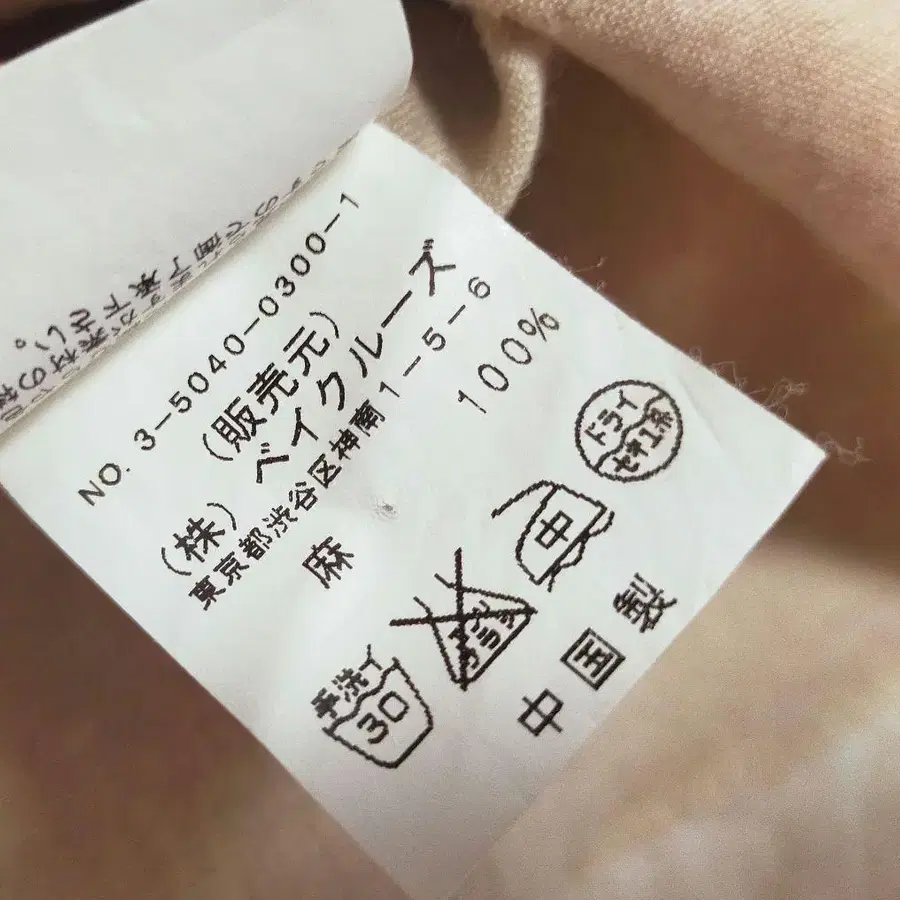 了承下さい。
ますが素材の
NO. 3-5040-0300-1
(販売元)
(株) ベイクルーズ
東京都渋谷区神南1-5-6
麻 100%
手洗イ
30
エンソ
サラシ
中
ドライ
セキユ系
中国製